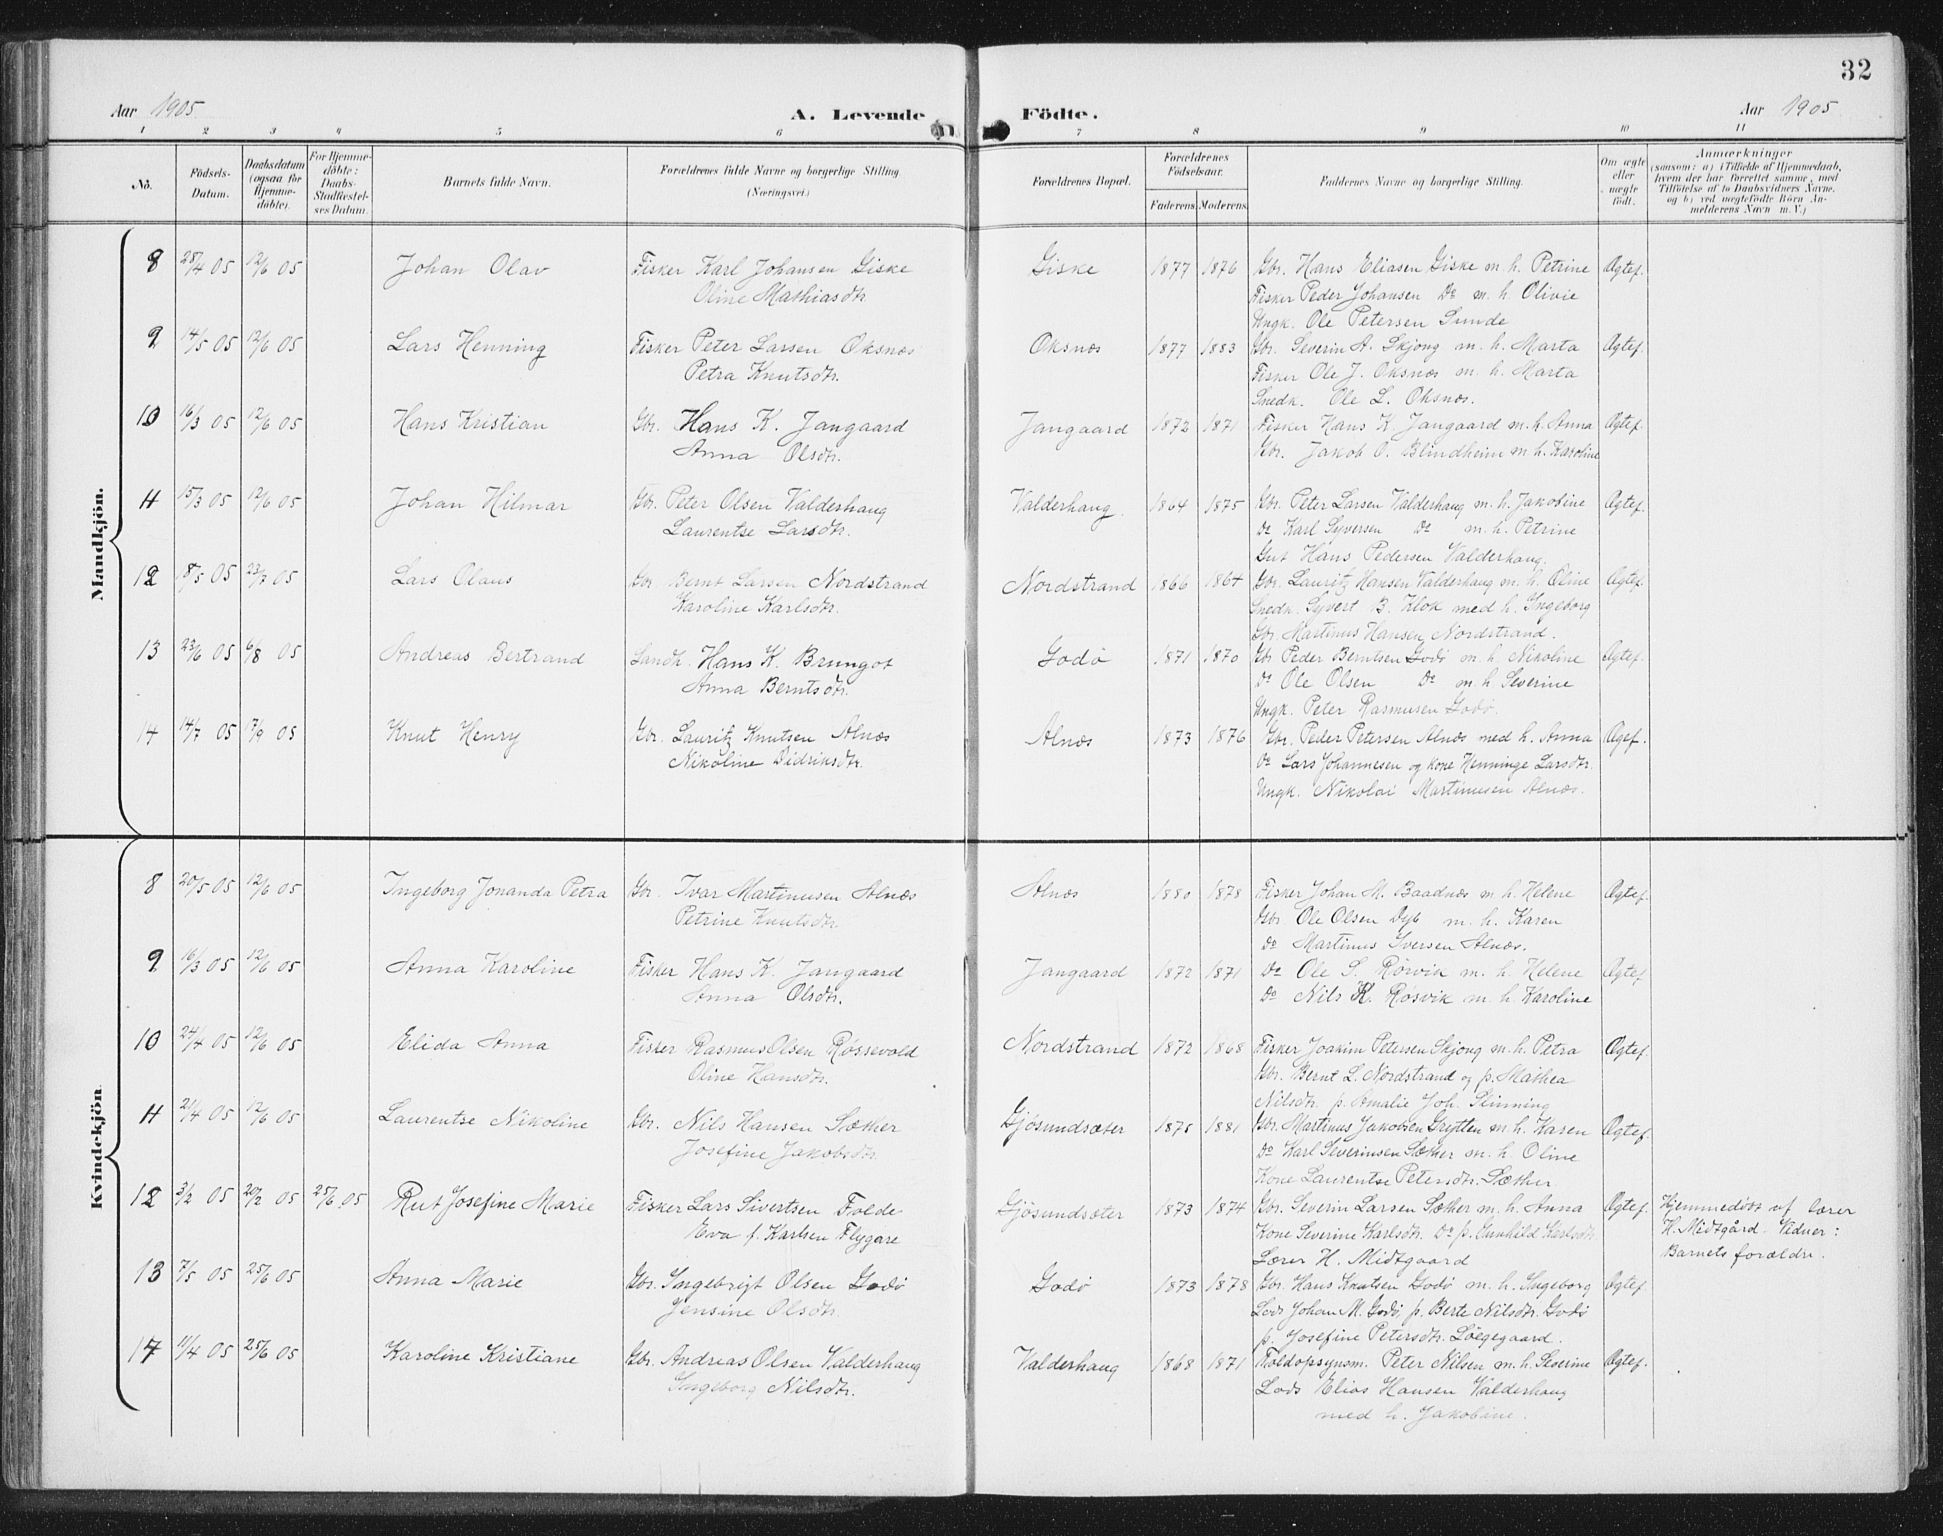 32
Aar 1905. A. Levende Födte. Aar 1905
1 2 3 4 5 6 7 8 9 10 11
No. Födsels-Datum. Daabsdatum (ogsaa for Hjemme-döbte). For Hjemme-döbte: Daabs-Stadfæstel-ses Datum. Barnets fulde Navn. Forældrenes fulde Navne og borgerlige Stilling. (Næringsvei.) Forældrenes Bopæl. Forældrenes Födselsaar. Faderens. Moderens. Faddernes Navne og borgerlige Stilling. Om ægte eller uægte födt. Anmærkninger (saasom: a) i Tilfælde af Hjemmedaab, hvem der har forrettet samme, med Tilföielse af to Daabsvidners Navne, og b) ved uægtefödte Börn An-melderens Navn m. V.)
Mandkjön.
8 28/4 05 12/6 05 Johan Olav Fisker Karl Johansen Giske Giske 1877 1876 Gbr. Hans Eliasen Giske m. h. Petrine Ægtef.
Oline Mathiasdtr. Fisker Peder Johansen Do m. h. Olivie
Ungk. Ole Petersen Sunde
9 14/5 05 12/6 05 Lars Henning Fisker Peter Larsen Oksnæs Oksnæs 1877 1883 Gbr. Severin A. Skjong m. h. Marta Ægtef.
Petra Knutsdtr. Fisker Ole J. Oksnæs m. h. Marta
Snedk. Ole L. Oksnæs.
10 16/3 05 12/6 05 Hans Kristian Gbr. Hans K. Jangaard Jangaard 1872 1871 Fisker Hans K. Jangaard m. h. Anna Ægtef.
Anna Olsdtr. Gbr. Jakob O. Blindheim m. h. Karoline
11 15/3 05 12/6 05 Johan Hilmar Gbr. Peter Olsen Valderhaug Valderhaug. 1864 1875 Gbr. Peter Larsen Valderhaug m. h. Jakobine Ægtef.
Laurentse Larsdtr. Do Karl Syversen Do m. h. Petrine
Gut Hans Pedersen Valderhaug.
12 18/5 05 23/7 05 Lars Olaus Gbr. Bernt Larsen Nordstrand Nordstrand 1866 1864 Gbr. Lauritz Hansen Valderhaug m. h. Oline Ægtef.
Karoline Karlsdtr. Snedk. Syvert B. Klok med h. Ingeborg
Gbr. Martinus Hansen Nordstrand.
13 23/6 05 6/8 05 Andreas Bertrand Landh. Hans K. Brungot Godø 1871 1870 Gbr Peder Berntsen Godø m. h. Nikoline Ægtef.
Anna Berntsdtr. Do Ole Olsen Do m. h. Severine
Ungk. Peter Rasmusen Godø.
14 14/7 05 17/9 05 Knut Henry Gbr. Lauritz Knutsen Alnæs Alnæs 1873 1876 Gbr. Peder Petersen Alnæs med h. Anna Ægef.
Nikoline Didriksdtr. Do Lars Johannesen og kone Henninge Larsdtr.
Ungk. Nikolai Martinusen Alnæs.
Kvindekjön
8 20/5 05 12/6 05 Ingeborg Jonanda Petra Gbr. Ivar Martinusen Alnæs Alnæs 1880 1878 Fisker Johan M. Baadnæs m. h. Helene Ægtef.
Petrine Knutsdtr Gbr Ole Olsen Dyb m. h. Karen
Do Martinus Iversen Alnæs.
9 16/3 05 12/6 05 Anna Karoline Fisker Hans K. Jangaard Jangaard 1872 1871 Do Ole S. Rørvik m. h. Helene Ægtef
Anna Olsdtr. Do Nils K. Røsvik m. h. Karoline
10 24/4 05 12/6 05 Elida Anna Fisker Rasmus Olsen Røssevold Nordstrand 1872 1868 Fisker Joakim Petersen Skjong m. h. Petra Ægtef.
Oline Hansdtr. Gbr. Bernt L. Nordstrand og p. Mathea
Nilsdtr. p. Amalie Joh. Slinning
11 21/4 05 12/6 05 Laurentse Nikoline Gbr. Nils Hansen Sæther Gjøsundsæter 1875 1881 Gbr. Martinus Jakobsen Grytten m. h. Karen Ægtef.
Josefine Jakobsdtr. Do Karl Severinsen Sæther m. h. Oline
Kone Laurentse Petersdtr. Sæther
12 3/2 05 20/2 05 25/6 05 Rut Josefine Marie Fisker Lars Sivertsen Folde Gjøsundsæter 1873 1874 Gbr. Severin Larsen Sæther m. h. Anna Ægtef. Hjemmedøbt af lærer
Eva f. Karlsen Flygare Kone Severine Karlsdtr. Do p. Gunhild Karlsdtr. H. Midtgård. Vidner:
Lærer H. Midtgaard Barnets forældre.
13 7/5 05 25/6 05 Anna Marie Gbr. Ingebrigt Olsen Godø Godø 1873 1878 Gbr. Hans Knutsen Godø m. h. Ingeborg Ægtef.
Jensine Olsdtr. Lods Johan M. Godø, p. Berte Nilsdtr. Godø
p. Josefine Petersdtr. Løegegaard.
14 11/4 05 25/6 05 Karoline Kristiane Gbr. Andreas Olsen Valderhaug Valderhaug 1868 1871 Toldopsynsm. Peter Nilsen m. h. Severine Ægtef.
Ingeborg Nilsdtr. Lods Elias Hansen Valderhaug
med h. Jakobine.